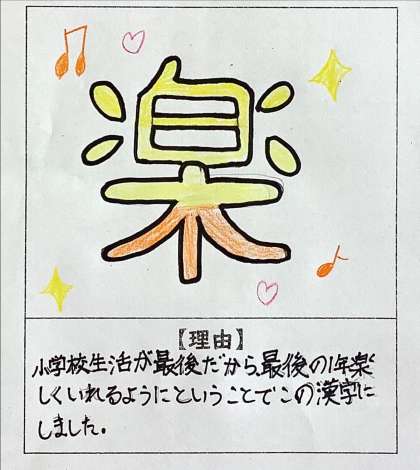 楽
【理由】
小学校生活が最後だから、最後の1年楽
しくいれるようにということでこの漢字に
しました。